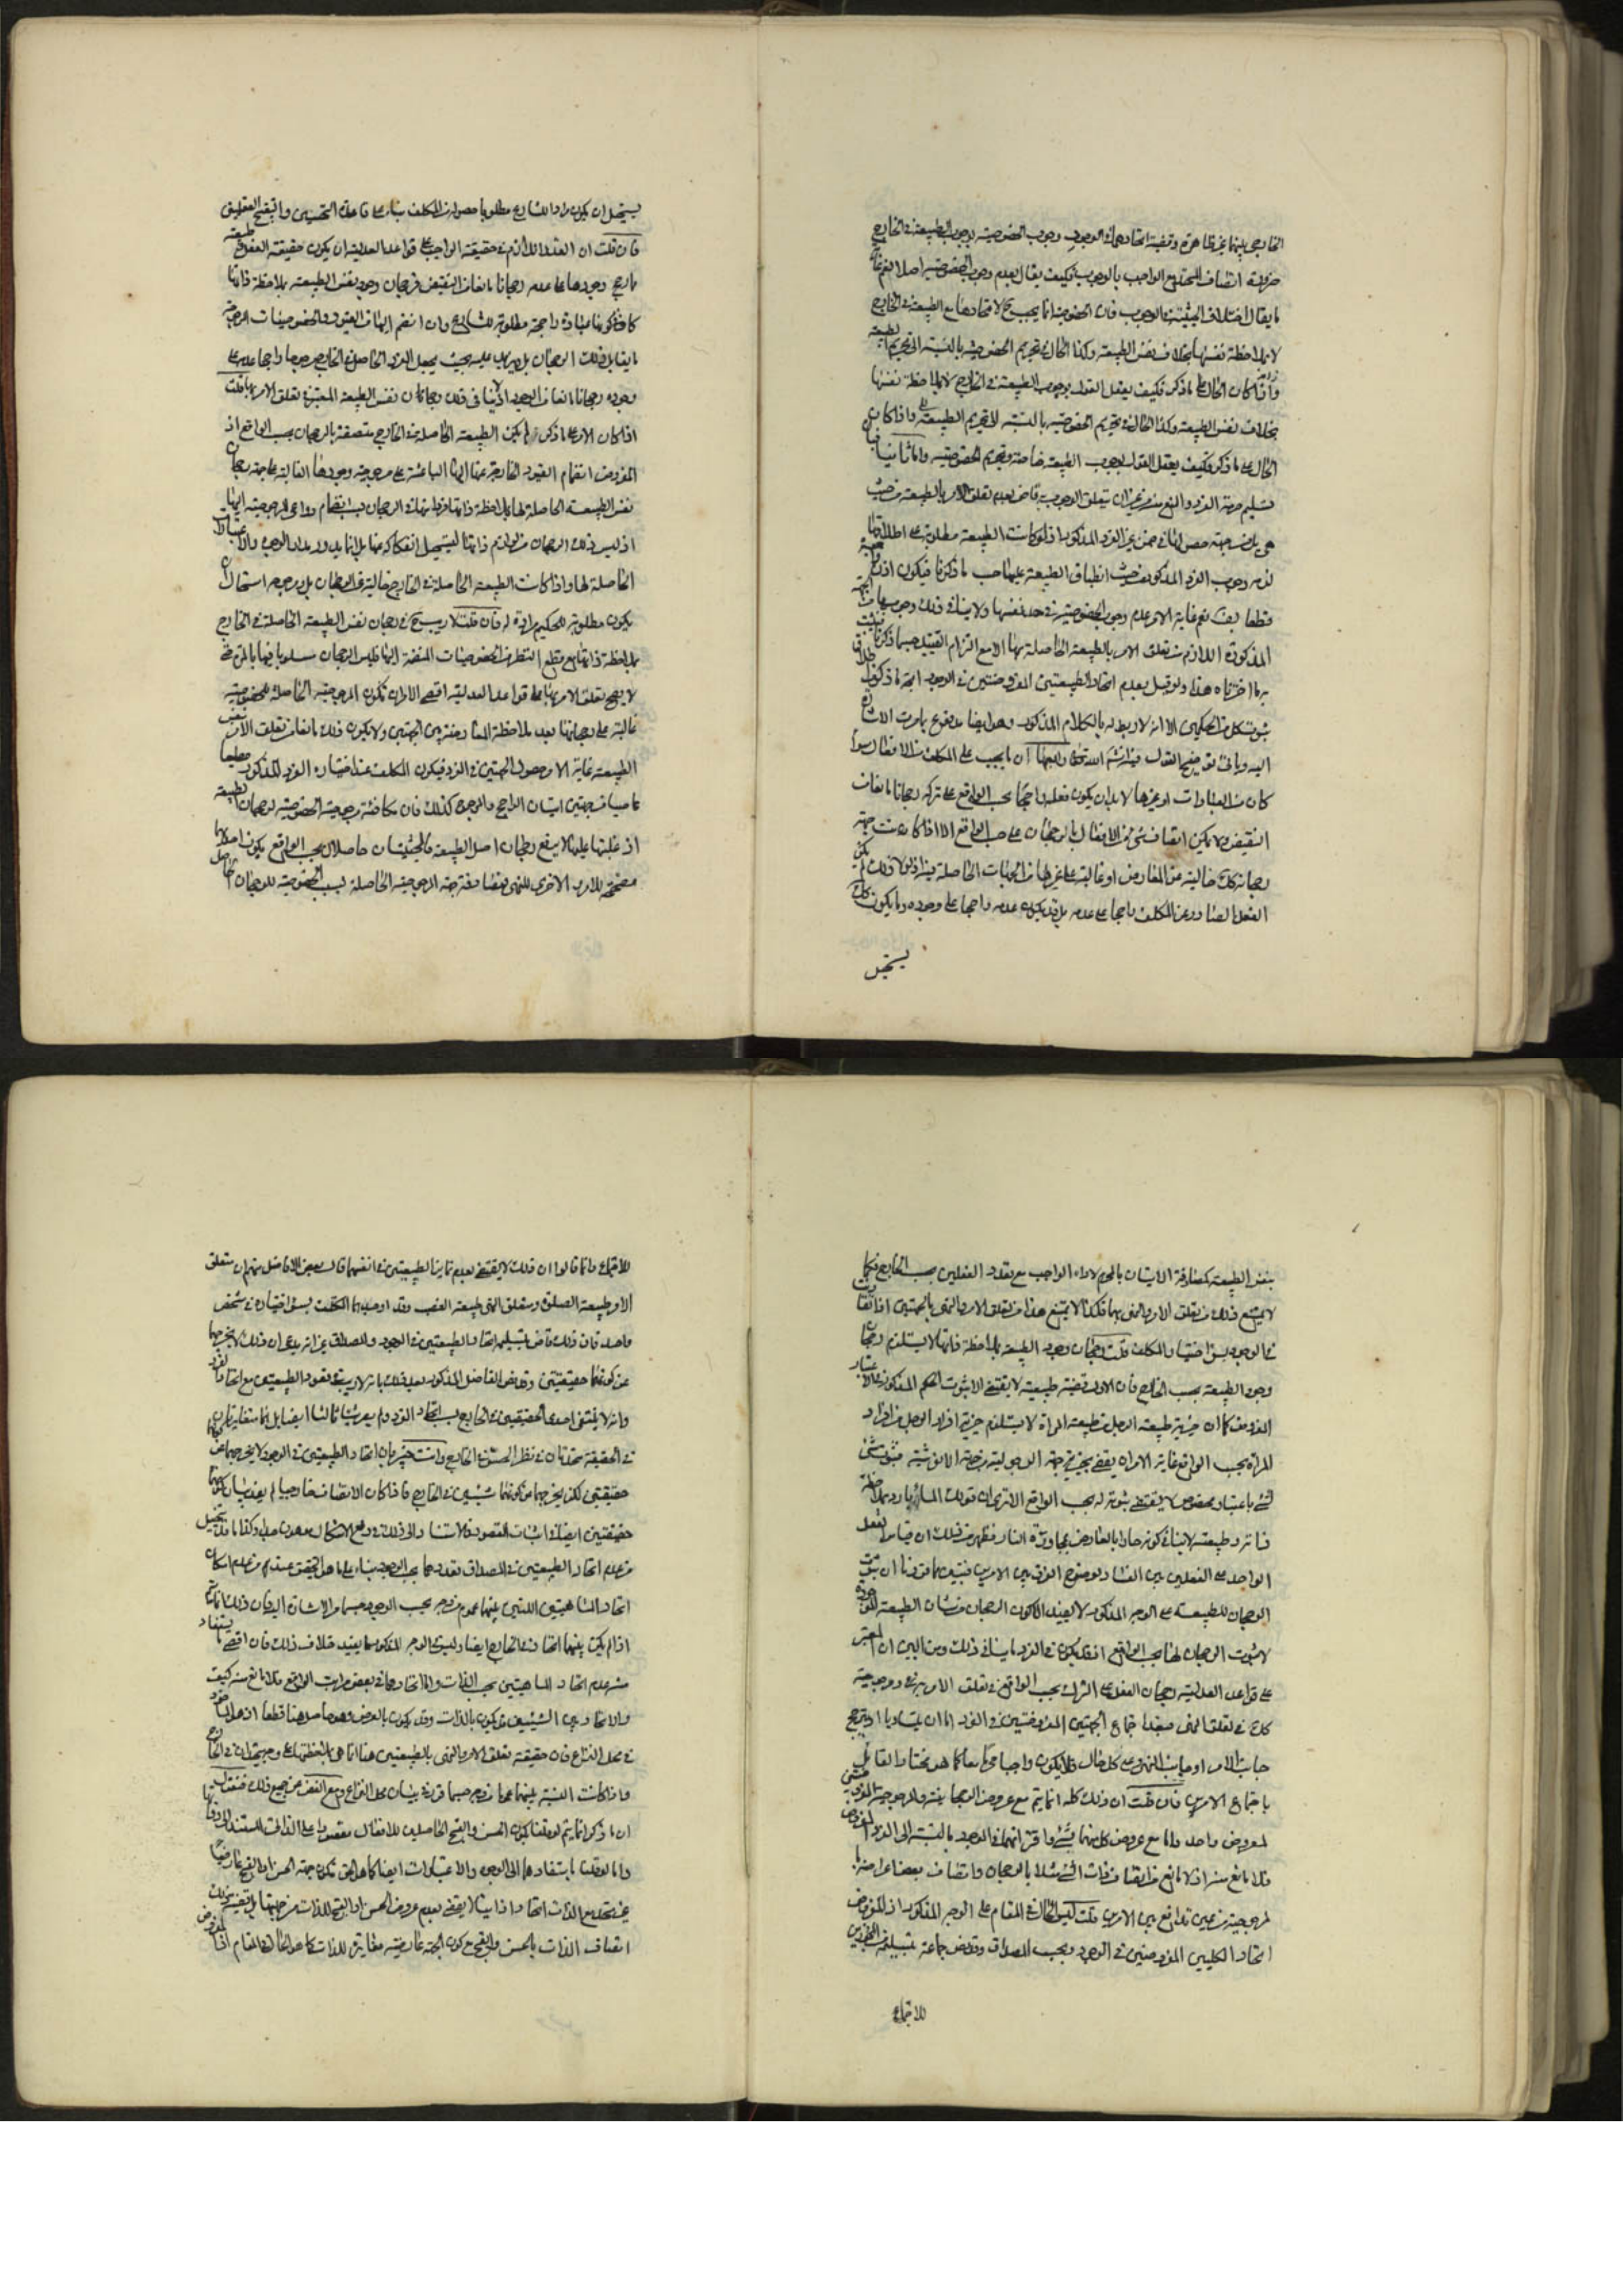 الخارجي بينهما غير ظاهرة وقضية اتحادهما في الوجود وجوب الخصوصية بوجوب الطبيعة في الخارج
ضرورة اتصاف المتحد مع الواجب بالوجوب فكيف يقال بعدم وجوب الخصوصية اصلا نعم غاية
ما يقال اختلاف الحيثية في الوجوب فان الخصوصية انما يجب ح لاتحادها مع الطبيعة في الخارج
لا بملاحظة نفسها بخلاف نفس الطبيعة وكذا الحال في تحريم الخصوصية بالنسبة الى تحريم الطبيعة
واذا كان الحال على ما ذكر فكيف يعقل القول بوجوب الطبيعة في الخارج لا بملاحظة نفسها
بخلاف نفس الطبيعة وكذا الحال في تحريم الخصوصية بالنسبة لا تحريم الطبيعة واذا كان
الحال على ما ذكر فكيف يعقل القول بوجوب الطبيعة خاصة وتحريم الخصوصية واما ثانيا فبان
تسليم حرمة الفرد والمنع منه من غير ان يتعلق الوجوب به قاض بعدم تعلق الامر بالطبيعة من حيث
هي بل من جهة حصولها في ضمن غير الفرد المذكور اذ لو كانت الطبيعة مطلوبة على اطلاقها
لزمه وجوب الفرد المذكور من حيث انطباق الطبيعة عليها حسب ما ذكرنا فيكون اذن واجبة
قطعا نعم غاية الامر عدم وجوب الخصوصية في حد نفسها ولا ينافي ذلك وجوبها من الجهة
المذكورة اللازم من تعلق الامر بالطبيعة الحاصلة بها الا مع التزام التقييد حسبما ذكرنا فيثبت
به ما اخترناه هذا ولو قيل بعدم اتحاد الطبيعتين المفروضتين في الوجود اتجه ما ذكروه
ثبوت كل من الحكمين الا انه لا ربط له بالكلام المذكور وهو ايضا مدفوع بما مرت الاشارة
اليه وياتي توضيح القول فيه ان شاء الله تعالى رابعها ان ما يجب على المكلف من الافعال سواء
كان من العبادات او غيرها لا بد ان يكون فعله راجحا بحسب الواقع على تركه رجحانا مانعا من
النقيض ولا يمكن اتصاف شيء من الافعال بالرجحان على حسب الواقع الا اذا كانت جهة
رجحانه خالية عن المعارض او غالبة على غيرها من الجهات الحاصلة فيه اذ لولا ذلك لم يكن
الفعل الصادر عن المكلف راجحا على عدمه بل قد يكون عدمه راجحا على وجوده وما يكون كذلك
يستحيل
يستحيل ان يكون مرادا للشارع مطلوبا حصوله من المكلف بناء على قاعدة التحسين والتقبيح العقليين
فان قلت ان القدر اللازم في حقيقة الواجب على قواعد العدلية ان يكون حقيقة الفعل وطبيعته
راجح وجودها على عدمه رجحانا مانعا من النقيض فرجحان وجود نفس الطبيعة بملاحظة ذاتها
كاف في كونها عبادة راجحة مطلوبة للشارع وان انضم اليها من القيود والخصوصيات المرجوحة
ما يقابل ذلك الرجحان بل ويزيد عليه بحيث يجعل الفرد الحاصل في الخارج مرجوحا راجحا عدمه على
وجوده رجحانا مانعا من الوجود اذ لا ينافي ذلك رجحان نفس الطبيعة المعتبرة في تعلق الامر بها قلت
اذا كان الامر على ما ذكر لم يكن الطبيعة الحاصلة في الخارج متصفة بالرجحان بحسب الواقع اذ
المفروض انضمام القيود الخارجة عنها اليها الباعثة على مرجوحية وجودها الغالبة على جهة رجحان
نفس الطبيعة الحاصلة لها بملاحظة ذاتها فزوالها ذلك الرجحان بسبب انضمام دواعي المرجوحية اليها
اذ ليس ذلك الرجحان من لوازم ذاتها ليستحيل انفكاكه عنها بل انما يدور مدار الوجوه والاعتبارات
الحاصلة لها واذا كانت الطبيعة الحاصلة في الخارج خالية عن الرجحان بل مرجوحه استحال ان
يكون مطلوبة للحكيم مرادة له فان قلت لا ريب ح في رجحان نفس الطبيعة الحاصلة في الخارج
بملاحظة ذاتها مع قطع النظر عن الخصوصيات المنضمة اليها فليس الرجحان مسلوبا عنها بالمرة حتى
لا يصح تعلق الامر بها على قواعد العدلية اقصى الامر ان تكون المرجوحية الحاصلة للخصوصية
غالبة على رجحانها بعد ملاحظة المعارضة بين الجهتين ولا يكون ذلك مانعا من تعلق الامر بنفس
الطبيعة غاية الامر حصول الجهتين في الفرد فيكون المكلف عند اختياره الفرد المذكور مطيعا
عاصيا من جهتين اتيان الراجح والمرجوح كذلك فان مكافئة مرجوحية الخصوصية لرجحان الطبيعة
او غلبتها عليها لا يرفع رجحان اصل الطبيعة فالحيثيتان حاصلان بحسب الواقع يكون احدهما
مصححة للامر والاخرى للنهي فمصادفة جهة المرجوحية الحاصلة بسبب الخصوصية للرجحان الحاصل
بنفس الطبيعة كمصادفة الاتيان بالمحرم لاداء الواجب مع تعدد الفعلين بحسب الخارج فكما
لا يمنع ذلك من تعلق الامر والنهي بهما فكذا لا يمنع هذا من تعلق الامر والنهي بالجهتين اذا اتفقا
في الوجود بسوء اختيار المكلف قلت رجحان وجود الطبيعة بملاحظة ذاتها لا يستلزم رجحان
وجود الطبيعة بحسب الخارج فان الاولى قضية طبيعية لا يقتضي الا ثبوت الحكم المذكور على الاعتبار
المفروض كما ان خيرية طبيعة الرجل من طبيعة المراة لا يستلزم خيرية افراد الرجل من افراد
المراة بحسب الواقع غاية الامر ان يقضي بخيرية جهة الرجولية من جهة الانوثية فثبوت شيء
لشيء باعتبار مخصوص لا يقتضي ثبوته له بحسب الواقع الا ترى ان قولك الماء بارد بملاحظة
ذاته وطبيعته لا ينافي كونه حارا بالعارض بمجاورة النار فظهر من ذلك ان قياس الفعل
الواحد على الفعلين بين الفساد لوضوح الفرق بين الامرين فتبين بما قررنا ان ثبوت
الرجحان للطبيعة على الوجه المذكور لا يفيد الا كون الرجحان من شان الطبيعة الموجودة
لا ثبوت الرجحان لها بحسب الواقع اذ قد يكون في الفرد ما ينافي ذلك ومن البين ان المعتبر
على قواعد العدلية رجحان الفعل على الترك بحسب الواقع في تعلق الامر به ومرجوحيته
كذلك في تعلق النهي فبعد اجتماع الجهتين المفروضتين في الفرد اما ان يتساويا او يترجح
جانب الامر او جانب النهي وعلى كل حال فلا يكون واجبا محرما معا كما هو مختار القائل
باجتماع الامرين فان قلت ان ذلك كله انما يتم مع عروض الرجحانية والمرجوحية المفروضتين
لمعروض واحد واما مع عروض كل منهما لشيء واقترانهما في الوجود بالنسبة الى الفرد المفروض
فلا مانع منه اذ لا مانع من اتصاف ذات الشيء مثلا بالرجحان واتصاف بعض اعراضه با
لمرجوحية من غير تدافع بين الامرين قلت ليس الحال في المقام على الوجه المذكور اذ المفروض
اتحاد الكليين المفروضين في الوجود وبحسب المصداق وقد نص جماعة بتسليمه من المجوزين
للاجتماع
للاجتماع وانما قالوا ان ذلك لا يقتضي بعدم تمايز الطبيعتين في انفسهما قال بعض الافاضل منهم ان متعلق
الامر طبيعة الصلوة ومتعلق النهي طبيعة الغصب وقد اوجدهما المكلف بسوء اختياره في شخص
واحد فان ذلك قاض بتسليمه اتحاد الطبيعتين في الوجود والمصداق غير انه يدعى ان ذلك لا يخرجهما
عن كونهما حقيقتين وقد نص الفاضل المذكور بعد ذلك بانه لا ريب في تعدد الطبيعتين مع اتحاد الفرد
وانه لا ينتفي احدى الحقيقتين في الخارج بسبب اتحاد الفرد ولم يصر شيئا ثالثا ايضا بل هما متغايرتان
في الحقيقة متحدتان في نظر الحس في الخارج وانت خبير بان اتحاد الطبيعتين في الوجود لا يخرجهما عن كونهما
حقيقتين لكن يخرجهما عن كونهما شيئين في الخارج فاذا كان الاتصاف خارجيا لم يفد بيان كونهما
حقيقتين ايضا في اثبات المقصود فالاستناد الى ذلك في دفع الاشكال مما لا وجه له وكذا ما قد يتخيل
من عدم اتحاد الطبيعتين في المصداق تعددهما بحسب الوجود بناء على ما هو المحقق عندهم من عدم امكان
اتحاد الماهيتين اللتين بينهما عموم من وجه بحسب الوجود حسبما مر الاشارة اليه فان ذلك انما يتم
اذا لم يكن بينهما اتحاد في الخارج ايضا وليس في الوجه المذكور ما يفيد خلاف ذلك فان اقصى ما يستفاد
منه عدم اتحاد الماهيتين بحسب الذات واما اتحادهما في بعض مراتب الواقع فلا مانع منه كيف
والاتحاد بين الشيئين قد يكون بالذات وقد يكون بالعرض وهو حاصل هنا قطعا اذ هو الماخوذ
في محل النزاع فان حقيقة تعلق الامر والنهي بالطبيعتين هنا انما هي بملاحظة وجودهما في الخارج
واذا كانت النسبة بينهما عموما من وجه حسبما قرر في بيان محل النزاع ومع الغض عن جميع ذلك فنقول
ان ما ذكر انما يتم لو قلنا بكون الحسن والقبح الحاصلين للافعال مقصورا على الذات المستند الى ذواتها
واما لو قلنا باستنادهما الى الوجوه والاعتبارات ايضا كما هو الحق تكون جهة الحسن او القبح عارضيا
غير متحد مع الذات اتحادا ذاتيا لا يقضي بعدم عروض الحسن او القبح للذات من جهتها بل قضية ذلك
اتصاف الذات بالحسن والقبح مع كون الجهة عارضية مغايرة للذات كما هو الحال في المقام اذ المفروض